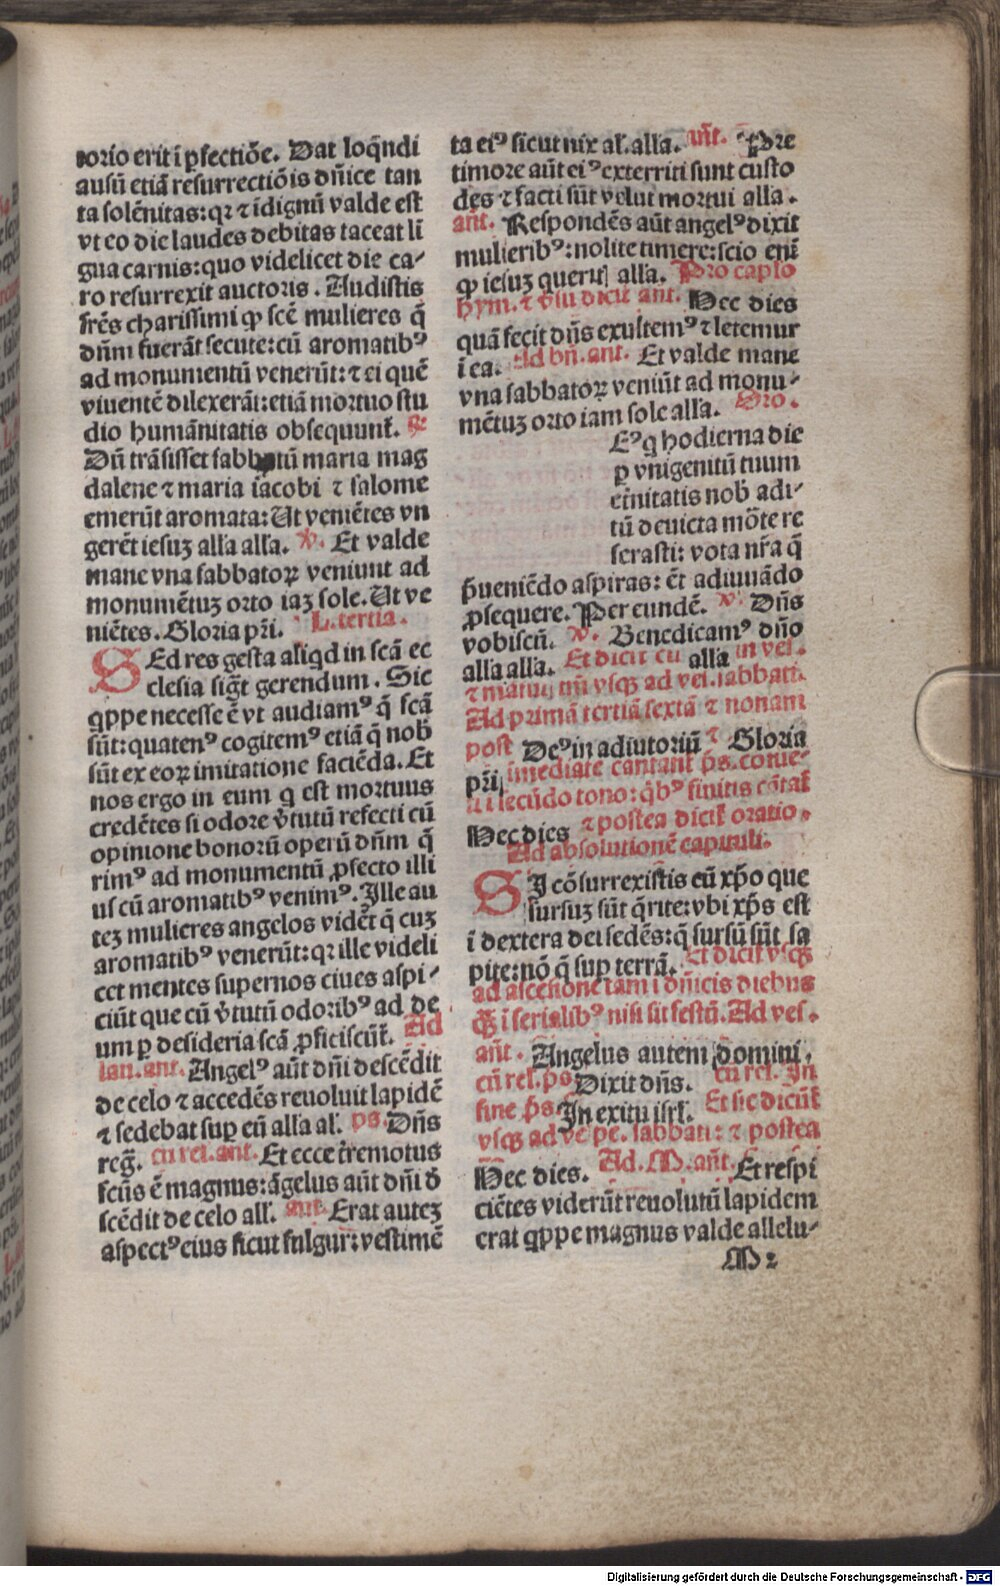 torio erit i ꝑfectiōe. Dat loq̄ndi
ausū etiā resurrectiōis dn̄ice tan
ta solēnitas: qꝛ ⁊ īdignū valde est
vt eo die laudes debitas taceat li
gua carnis: quo videlicet die ca⸗
ro resurrexit auctoris. Audistis
fr̄es charissimi ꝙ scē mulieres q̄
dn̄m fuerāt secute: cū aromatibꝰ
ad monumentū venerūt: ⁊ ei quē
viuentē dilexerāt: etiā mortuo stu
dio humānitatis obsequunt̄. ꝶ
Dū trāsisset sabbatū maria mag
dalene ⁊ maria iacobi ⁊ salome
emerūt aromata: Ut veniētes vn
gerēt iesuꝫ alła alła. ℣. Et valde
mane vna sabbatoꝝ veniunt ad
monumētuꝫ orto iaꝫ sole. Ut ve
niētes. Gloria pr̄i. L. tertia.
Sed res gesta aliqd in scā ec
clesia sig̅t gerendum. Sic
qppe necesse ē vt audiamꝰ q̄ scā
sūt: quatenꝰ cogitemꝰ etiā q̄ nob̄
sūt ex eoꝝ imitatione faciēda. Et
nos ergo in eum q est mortuus
credētes si odore v̄tutū refecti cū
opinione bonorū operū dn̄m q̄
rimꝰ ad monumentū ꝓfecto illi
us cū aromatibꝰ venimꝰ. Ille au
teꝫ mulieres angelos vidēt q̄ cuꝫ
aromatibꝰ venerūt: qꝛ ille videli
cet mentes supernos ciues aspi⸗
ciūt que cū v̄tutū odoribꝰ ad de
um ꝑ desideria scā ꝓficiscūt̄. Ad
lau. ant. Angelꝰ aūt dn̄i descēdit
de celo ⁊ accedēs reuoluit lapidē
⁊ sedebat suꝑ eū alła al̄. ps. Dn̄s
reg̅. cū rel. ant. Et ecce t̄remotus
scūs ē magnus: āgelus aūt dn̄i d̄
scēdit de celo all̄. ant. Erat auteꝫ
aspectꝰ eius sicut fulgur: vestimē
ta eiꝰ sicut nix al̄. alła. an̄t. Pre
timore aūt eiꝰ exterriti sunt custo
des ⁊ facti sūt velut mortui alla.
an̄t. Respondēs aūt angelꝰ dixit
mulieribꝰ: nolite timere: scio eni
ꝙ iesuꝫ queritꝭ alła. Pro caplo
hym. ⁊ v̄su dicit̄ ant. Hec dies
quā fecit dn̄s exultemꝰ ⁊ letemur
ī ea. Ad bn̄. ant. Et valde mane
vna sabbatoꝝ veniūt ad monu⸗
mētuꝫ orto iam sole alła. Oro.
Eꝰ q hodierna die
ꝑ vnigenitū tuum
et̄nitatis nob̄ adi⸗
tū deuicta mōte re
serasti: vota nr̄a q̄
p̄ueniēdo aspiras: ēt adiuuādo
ꝓsequere. Per eundē. ℣. Dn̄s
vobiscū. ℣. Benedicamꝰ dn̄o
alła alła. Et dicit̄ cū alła in ves.
⁊ matutꝭ tm̄ vsqꝫ ad ves. sabbati.
Ad primā tertiā sextā ⁊ nonam
post Deꝰ in adiutoriū ⁊ Gloria
pr̄i imediate cantant̄ ps. conue⸗
ti secūdo tono: qb̄ꝰ finitis cātat̄
Hec dies ⁊ postea dicit̄ oratio.
Ad absolutionē capituli.
Si cōsurrexistis cū xp̄o que
sursuꝫ sūt q̄rite: vbi xp̄s est
ī dextera dei sedēs: q̄ sursū sūt sa
pite: nō q̄ sup terrā. Et dicit̄ vsqꝫ
ad ascēsionē tam ī dn̄icis diebus
q̄ȝ ī ferialibꝰ nisi sit festū. Ad ves.
an̄t. Angelus autem domini.
cū rel. ps. Dixit dn̄s. cū rel. In
fine ps. In exitu isrł. Et sic dicūt̄
vsqꝫ ad ve pe. sabbati: ⁊ postea
Hec dies. Ad. M. an̄t. Et respi
ciētes viderūt reuolutū lapidem
erat qppe magnus valde allelu⸗
M 2
Digitalisierung gefördert durch die Deutsche Forschungsgemeinschaft - DFG